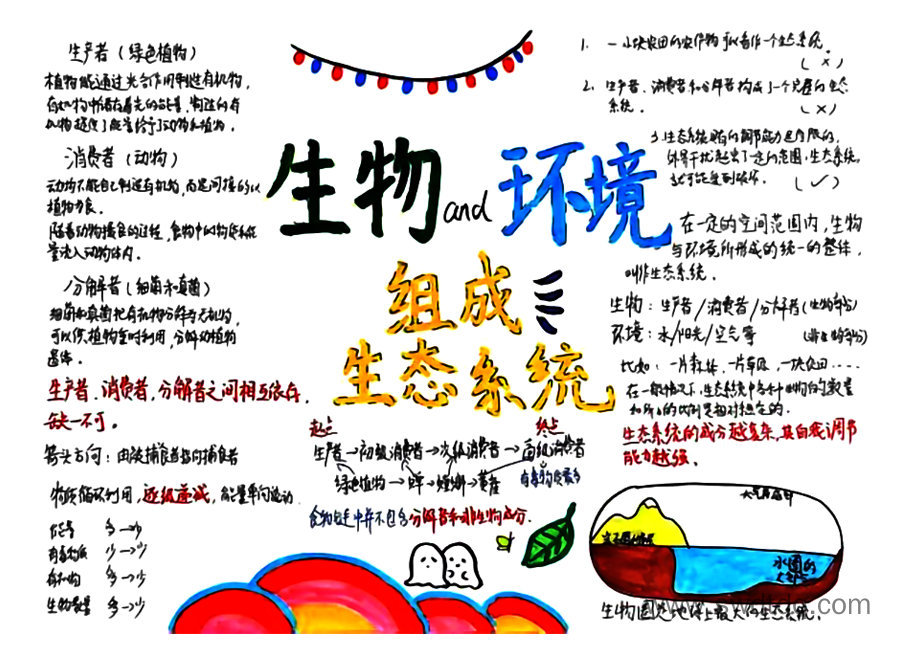 生产者（绿色植物）
植物能通过光合作用制造有机物，
有机物中储存着光的能量，制造的有
机物提供了能量给予了动物和植物。
消费者（动物）
动物不能自己制造有机物，而是间接的以
植物为食。
随着动物摄食的过程，食物中的物质和能
量流入动物体内。
分解者（细菌和真菌）
细菌和真菌把有机物分解为无机物，
可以供植物重新利用，分解动植物
遗体。
生产者、消费者，分解者之间相互依存，
缺一不可。
箭头方向：由被捕食者指向捕食者
物质循环利用，逐级递减，能量单向流动
能量 多→少
有毒物质 少→多
有机物 多→少
生物数量 多→少
生物and环境
组成
生态系统
起点 终点
生产者→初级消费者→次级消费者→高级消费者
绿色植物→蝉→螳螂→黄雀
有毒物质最多
食物链中并不包含分解者和非生物成分.
1. 一小块农田的农作物可以看作一个生态系统。
（×）
2. 生产者、消费者和分解者构成了一个完整的生态
系统。 （×）
3.生态系统具有的调节能力是有限的，
外界干扰超出了一定的范围，生态系统
就可能受到破坏. （✓）
在一定的空间范围内，生物
与环境所形成的统一的整体，
叫非生态系统.
生物：生产者/消费者/分解者（生物部分）
环境：水/阳光/空气等 （非生物部分）
比如：一片森林、一片草原、一块农田……
在一般情况下，生态系统中各种生物的数量
和所占的比例是相对稳定的.
生态系统的成分越复杂，其自我调节
能力越强。
大气圈底部
岩石圈的表面
水圈的
大部分
生物圈是地球上最大的生态系统。